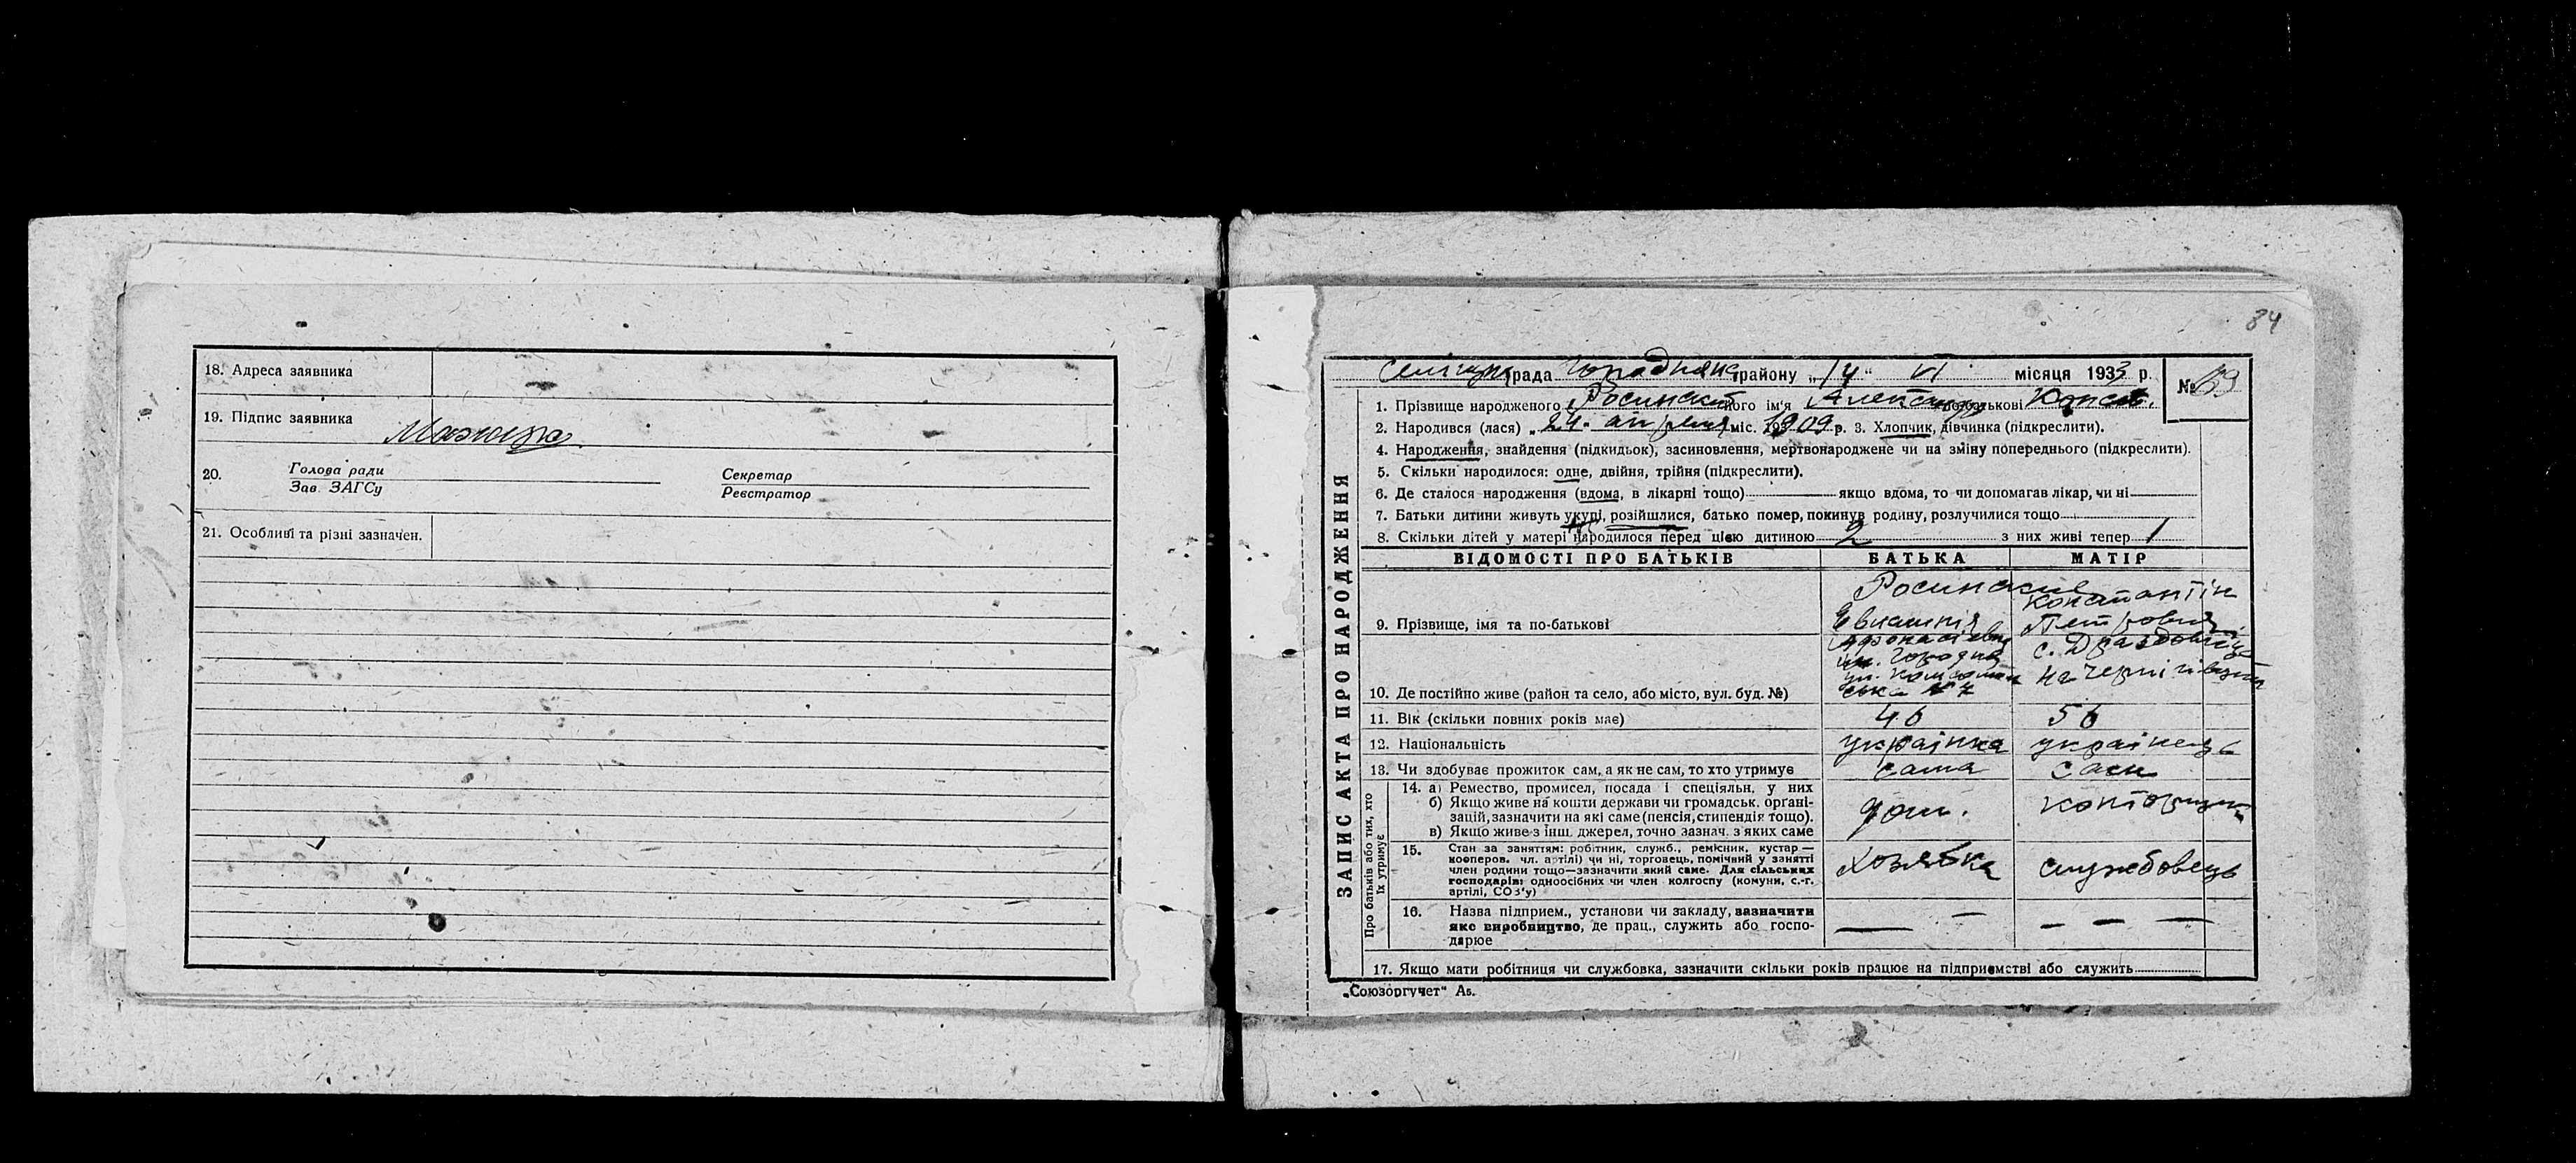 18. Адреса заявника
19. Підпис заявника
20. Голова ради
Зав. ЗАГСу
Секретар
Реєстратор
21. Особливі та різні зазначен.
84
ЗАПИС АКТА ПРО НАРОДЖЕННЯ
рада району „14“ VI місяця 1935 р.
№
1. Прізвище народженого Росинский його ім'я Александр по батькові Конст.
2. Народився (лася) „24. апреля міс. 1909 р. 3. Хлопчик, дівчинка (підкреслити).
4. Народження, знайдення (підкидьок), засиновлення, мертвонароджене чи на зміну попереднього (підкреслити).
5. Скільки народилося: одне, двійня, трійня (підкреслити).
6. Де сталося народження (вдома, в лікарні тощо) якщо вдома, то чи допомагав лікар, чи ні
7. Батьки дитини живуть укупі, розійшлися, батько помер, покинув родину, розлучилися тощо
8. Скільки дітей у матері народилося перед цією дитиною 2 з них живі тепер 1
ВІДОМОСТІ ПРО БАТЬКІВ БАТЬКА МАТІР
Росинские
Константін
9. Прізвище, імя та по-батькові Петрович
с. Дроздовиця
на Чернігівщині
10. Де постійно живе (район та село, або місто, вул. буд. №) ська № 7
11. Вік (скільки повних років має) 46 56
12. Національність українка українець
13. Чи здобуває прожиток сам, а як не сам, то хто утримує сама сам
Про батьків або тих, хто їх утримує
14. а) Ремество, промисел, посада і спеціяльн. у них
б) Якщо живе на кошти держави чи громадськ. органі-
зацій, зазначити на які саме (пенсія, стипендія тощо).
в) Якщо живе з інш. джерел, точно зазнач. з яких саме
дом. конторщик
15. Стан за заняттям: робітник, служб., ремісник, кустар —
кооперов. чл. артілі) чи ні, торговець, помічний у занятті
член родини тощо—зазначити який саме. Для сільських
господарів: одноосібних чи член колгоспу (комуни, с.-г.
артілі, СОЗ'у)
хозяйка службовець
16. Назва підприєм., установи чи закладу, зазначити
яке виробництво, де прац., служить або госпо-
дарює
17. Якщо мати робітниця чи службовка, зазначити скільки років працює на підприємстві або служить
„Союзоргучет“ А5.